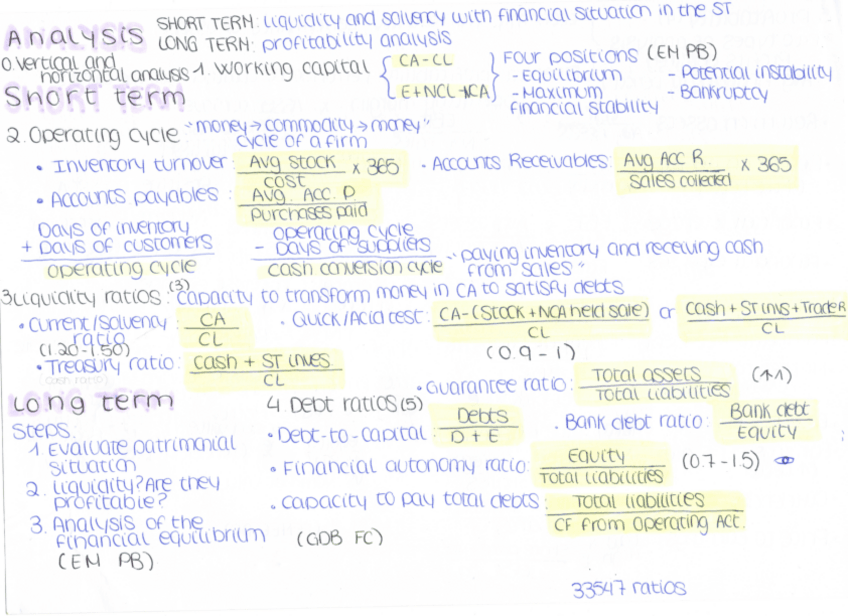 Analysis
SHORT TERM: liquidity and solvency with financial situation in the ST
LONG TERM: profitability analysis
0. Vertical and horizontal analysis
1. Working capital { CA-CL
E+NCL-NCA }
Four positions (EM PB)
- Equilibrium
- Maximum financial stability
- Potential instability
- Bankruptcy
Short term
2. Operating cycle "money → commodity → money"
cycle of a firm
• Inventory turnover: Avg stock / cost x 365
• Accounts Receivables: Avg Acc R. / Sales collected x 365
• Accounts payables: Avg. Acc. P / Purchases paid
Days of inventory
+ Days of customers
operating cycle
operating cycle
- Days of suppliers
cash conversion cycle
"paying inventory and receiving cash
from sales"
3. Liquidity ratios: (3) capacity to transform money in CA to satisfy debts
• Current/Solvency ratio: CA / CL
(1.20-1.50)
• Quick/Acid test: CA-(Stock+NCA held sale) / CL or Cash+ST invs+Trade R / CL
(0.9-1)
• Treasury ratio: Cash + ST inves / CL
(cash ratio)
Long term
Steps.
1. Evaluate patrimonial
situation
2. Liquidity? Are they
profitable?
3. Analysis of the
financial equilibrium
(EM PB)
4. Debt ratios (5)
• Guarantee ratio: Total assets / Total liabilities (↑1)
• Debt-to-Capital: Debts / D + E
• Bank debt ratio: Bank debt / Equity
• Financial autonomy ratio: Equity / Total liabilities (0.7-1.5)
• Capacity to pay total debts: Total liabilities / CF from Operating Act.
(GDB FC)
33547 ratios